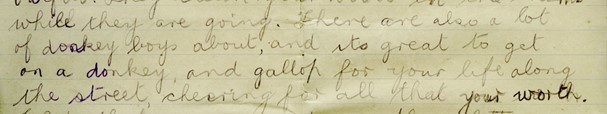 while they are going. There are also a lot
of donkey boys about, and its great to get
on a donkey, and gallop for your life along
the street, cheering for all that your worth.